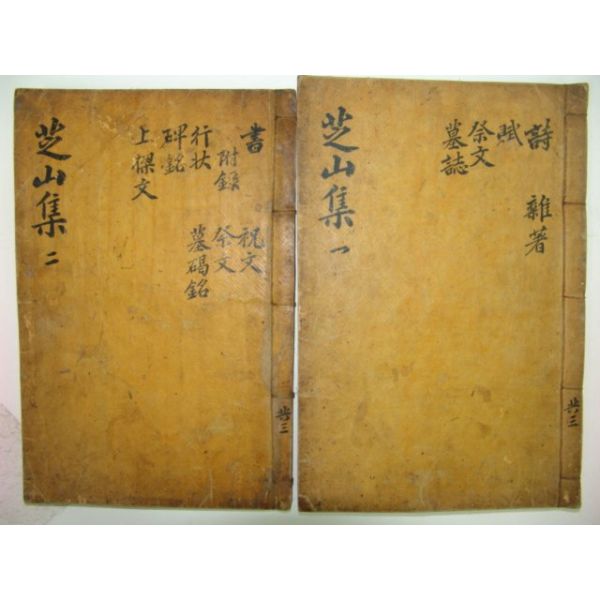 芝山集 一
詩 雜著
賦
祭文
墓誌
共三
芝山集 二
書 祝文
附錄 祭文
行状 墓碣銘
碑銘
上樑文
共三